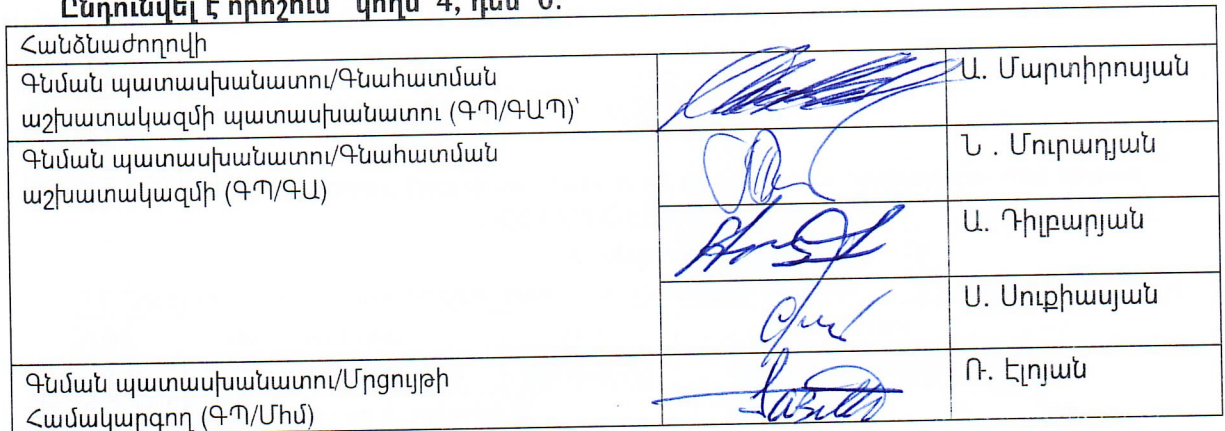 Ընդունվել է որոշում` կողմ` 4, դեմ` 0:
Հանձնաժողովի
Գնման պատասխանատու/Գնահատման
աշխատակազմի պատասխանատու (ԳՊ/ԳԱՊ)`
Ա. Մարտիրոսյան
Գնման պատասխանատու/Գնահատման
աշխատակազմի (ԳՊ/ԳԱ)
Ն . Մուրադյան
Ա. Դիլբարյան
Ս. Սուքիասյան
Գնման պատասխանատու/Մրցույթի
Համակարգող (ԳՊ/Միմ)
Ռ. Էլոյան